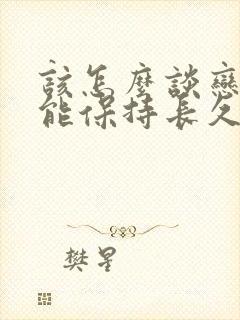 該怎麼談戀
能保持長久
樊星